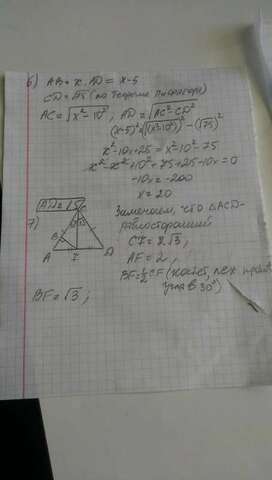 6) AB = x, AD = x - 5
CD = √75 (по теореме Пифагора)
AC = √(x² - 10²), AD = √(AC² - CD²)
(x-5)² = (√(x²-10²))² - (√75)²
x² - 10x + 25 = x² - 10² - 75
x² - x² + 10² + 75 + 25 - 10x = 0
-10x = -200
x = 20
7)
C
B
A
F
D
Замечаем, что △ACD -
равносторонний
CF = 2√3;
AF = 2;
BF = ½ CF (катет, леж. против
угла в 30°)
BF = √3;